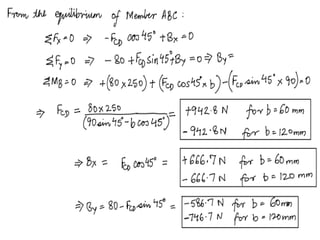 From the equilibrium of Member ABC :
ΣFx=0 ⇒ -FCD cos45° +Bx = 0
ΣFy=0 ⇒ -80 +FCD sin45°+By =0 ⇒ By=
ΣMB=0 ⇒ +(80×250) + (FCD cos45°×b) - (FCD sin45° × 90)=0
⇒ FCD = 80×250 / (90sin45°-bcos45°) = +942.8 N for b=60mm
-942.8N for b=120mm
⇒ Bx = FCD cos45° = +666.7N for b=60mm
-666.7N for b=120 mm
⇒ By = 80-FCD sin45° = -586.7N for b= 60mm
-746.7N for b=120mm